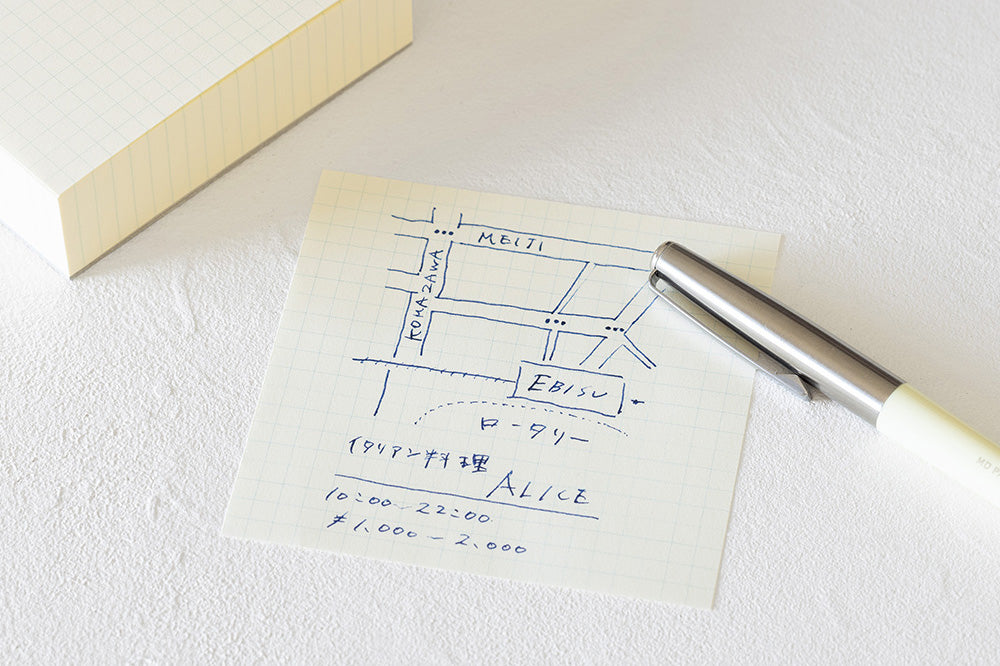 MEIJI
KOMAZAWA
EBISU
ロータリー
イタリアン料理
ALICE
10:00~22:00
¥1,000~2,000
MD